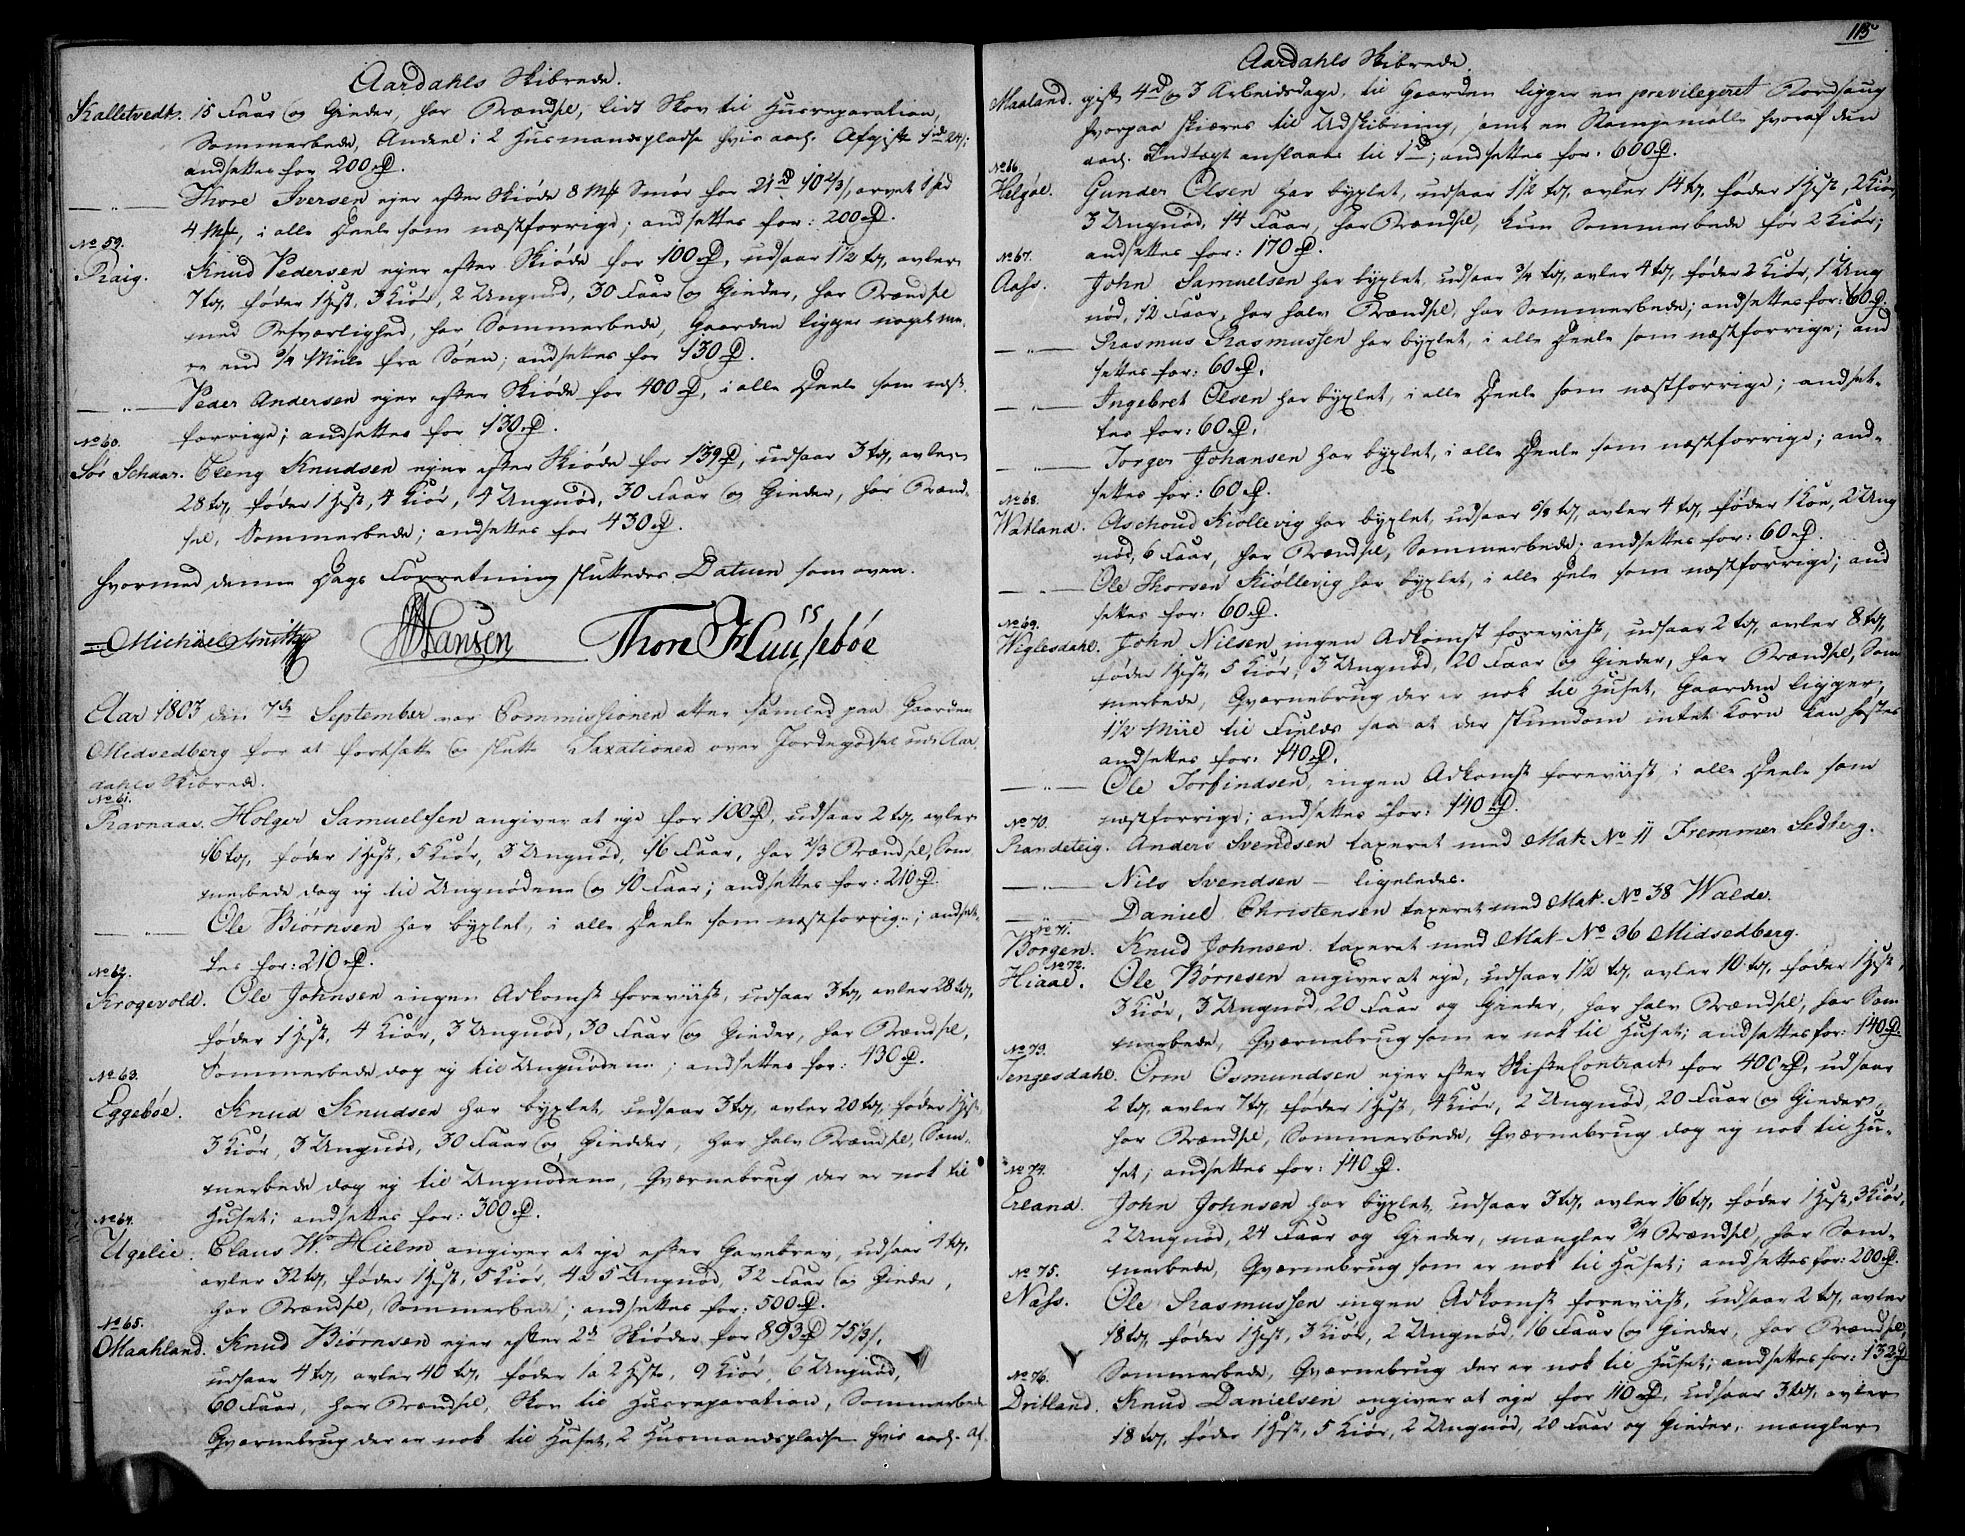 Aardahls Skibrede.
Kalletvedt. 15 Faar og Gieder, har Brændsel, lidt Skov til Husreparation,
Sommerbede, Andeel i 2 Husmandspladse hvis aarl. Afgift 1 rd 24 s;
andsettes for 200 rd.
—„— Thore Iversen ejer efter Skiøde 8 Mk Smør for 21 rd 40 2/3 s, arvet
4 Mk, i alle Deele som næstforrige; andsettes for: 200 rd.
No 59.
Praig. Knud Pedersen ejer efter Skiøde for 100 rd, udsaar 1 1/2 td, avler
7 td, føder 1 Hest, 3 Kiør, 2 Ungnød, 30 Faar og Gieder, har Brændsel
med Besværlighed, har Sommerbede, Gaarden ligger noget me-
re end 3/4 Miil fra Søen; andsettes for 130 rd.
—„— Peder Andersen ejer efter Skiøde for 400 rd, i alle Deele som næst-
forrige; andsettes for 130 rd.
No 60.
Sør Schaar. Elling Knudsen ejer efter Skiøde for 139 rd, udsaar 3 td, avler
28 td, føder 1 Hest, 4 Kiør, 4 Ungnød, 30 Faar og Gieder, har Brænd-
sel, Sommerbede; andsettes for 430 rd.
Hvormed denne Dags Forretning sluttedes Datum som oven.
Michael Smith HHansen Thore Huussebøe
Aar 1803 den 7de September var Commissionen atter samlet paa Gaarden
Midsedberg for at fortsætte og slutte Taxationen over Jordegodset udi Aar-
dahls Skibrede.
No 61.
Ravnaas. Holger Samuelsen angiver at eje for 100 rd, udsaar 2 td, avler
16 td, føder 1 Hest, 5 Kiør, 3 Ungnød, 16 Faar, har 2/3 Brændsel, Som-
merbede dog ej til Ungnødene og 10 Faar; andsettes for: 210 rd.
—„— Ole Biørnsen har byxlet, i alle Deele som næstforrige; andset-
tes for: 210 rd.
No 62.
Krogevold. Ole Johnsen ingen Adkomst foreviist, udsaar 3 td, avler 28 td,
føder 1 Hest, 4 Kiør, 3 Ungnød, 30 Faar og Gieder, har Brændsel,
Sommerbede dog ej til Ungnødene; andsettes for: 430 rd.
No 63.
Eggebøe. Knud Knudsen har byxlet, udsaar 3 td, avler 20 td, føder 1 Hest,
3 Kiør, 3 Ungnød, 30 Faar og Giedder, har halv Brændsel, Som-
merbede dog ej til Ungnødene, Qværnebrug der er nok til
Huset; andsettes for: 300 rd.
No 64.
Ugelie. Claus W. Hielm angiver at eje efter Gavebrev, udsaar 4 td,
avler 32 td, føder 1 Hest, 5 Kiør, 4 a 5 Ungnød, 32 Faar og Gieder,
har Brændsel, Sommerbede; andsettes for: 500 rd.
No 65.
Maahland. Knud Biørnsen ejer efter 2de Skiøder for 893 rd 75 1/3 s,
udsaar 4 td, avler 40 td, føder 1 a 2 Heste, 9 Kiør, 6 Ungnød,
60 Faar, har Brændsel, Skov til Husreparation, Sommerbede
Qværnebrug der er nok til Huset, 2 Husmandspladse hvis aarl. Af-
115
Aardahls Skibrede.
Maaland. gift 4 rd og 3 Arbeidsdage, til Gaarden ligger en previlegeret Bordsaug
hvorpaa skiæres til Udskibning, samt en Stampemølle hvoraf den
aarl. Indtægt anslaaes til 1 rd; andsettes for: 600 rd.
No 66.
Helgøe. Gunder Olsen har byxlet, udsaar 1 1/2 td, avler 14 td, føder 1 Hest, 2 Kiør,
3 Ungnød, 14 Faar, har Brændsel, kun Sommerbede for 2 Kiør;
andsettes for: 170 rd.
No 67.
Aass. John Samuelsen har byxlet, udsaar 3/4 td, avler 4 td, føder 2 Kiør, 1 Ung-
nød, 12 Faar, har halv Brændsel, har Sommerbede; andsettes for: 60 rd.
—„— Rasmus Rasmussen har byxlet, i alle Deele som næstforrige; and-
settes for: 60 rd.
—„— Ingebret Olsen har byxlet, i alle Deele som næstforrige; andset-
tes for: 60 rd.
—„— Torger Johansen har byxlet, i alle Deele som næstforrige; and-
settes for: 60 rd.
No 68.
Watland. Aschoud Kiøllevig har byxlet, udsaar 5/8 td, avler 4 td, føder 1 Koe, 2 Ung-
nød, 6 Faar, har Brændsel, Sommerbede; andsettes for: 60 rd.
—„— Ole Thorsen Kiøllevig har byxlet, i alle Deele som næstforrige; and-
settes for: 60 rd.
No 69.
Wiglesdahl. John Nilsen ingen Adkomst foreviist, udsaar 2 td, avler 8 td,
føder 1 Hest, 5 Kiør, 3 Ungnød, 20 Faar og Gieder, har Brændsel, Som-
merbede, Qværnebrug der er nok til Huset, Gaarden ligger
1 1/2 Miil til Fields saa at der stundom intet Korn kan høstes
andsettes for: 140 rd.
—„— Ole Torfindsen, ingen Adkomst foreviist i alle Deele som
næstforrige; andsettes for: 140 rd.
No 70.
Randeteig. Anders Svendsen taxeret med Mat. No 11 Fremmer Sedberg.
—„— Nils Svendsen — ligeledes.
—„— Daniel Christensen taxeret med Mat. No 38 Walde.
No 71.
Borgen. Knud Johnsen taxeret med Mat. No 36 Midsedberg.
No 72.
Hiaal. Ole Børresen angiver at eje, udsaar 1 1/2 td, avler 10 td, føder 1 Hest,
3 Kiør, 3 Ungnød, 20 Faar og Gieder, har halv Brændsel, har Som-
merbede, Qværnebrug som er nok til Huset; andsettes for: 140 rd.
No 73.
Tengesdahl. Orm Osmundsen ejer efter SkifteContract for 400 rd, udsaar
2 td, avler 7 td, føder 1 Hest, 4 Kiør, 2 Ungnød, 20 Faar og Gieder,
har Brændsel, Sommerbede, Qværnebrug dog ej nok til Hu-
set; andsettes for: 140 rd.
No 74.
Erland. John Johnsen har byxlet, udsaar 3 td, avler 16 td, føder 1 Hest, 3 Kiør,
2 Ungnød, 24 Faar og Gieder, mangler 3/4 Brændsel, har Som-
merbede, Qværnebrug som er nok til Huset; andsettes for: 200 rd.
No 75.
Næss. Ole Rasmussen ingen Adkomst foreviist, udsaar 2 td, avler
18 td, føder 1 Hest, 3 Kiør, 2 Ungnød, 16 Faar og Gieder, har Brændsel,
Sommerbede, Qværnebrug der er nok til Huset; andsettes for: 132 rd
No 76.
Dritland. Knud Danielsen angiver at eje for 110 rd, udsaar 3 td, avler
18 td, føder 1 Hest, 5 Kiør, 2 Ungnød, 20 Faar og Gieder, mangler